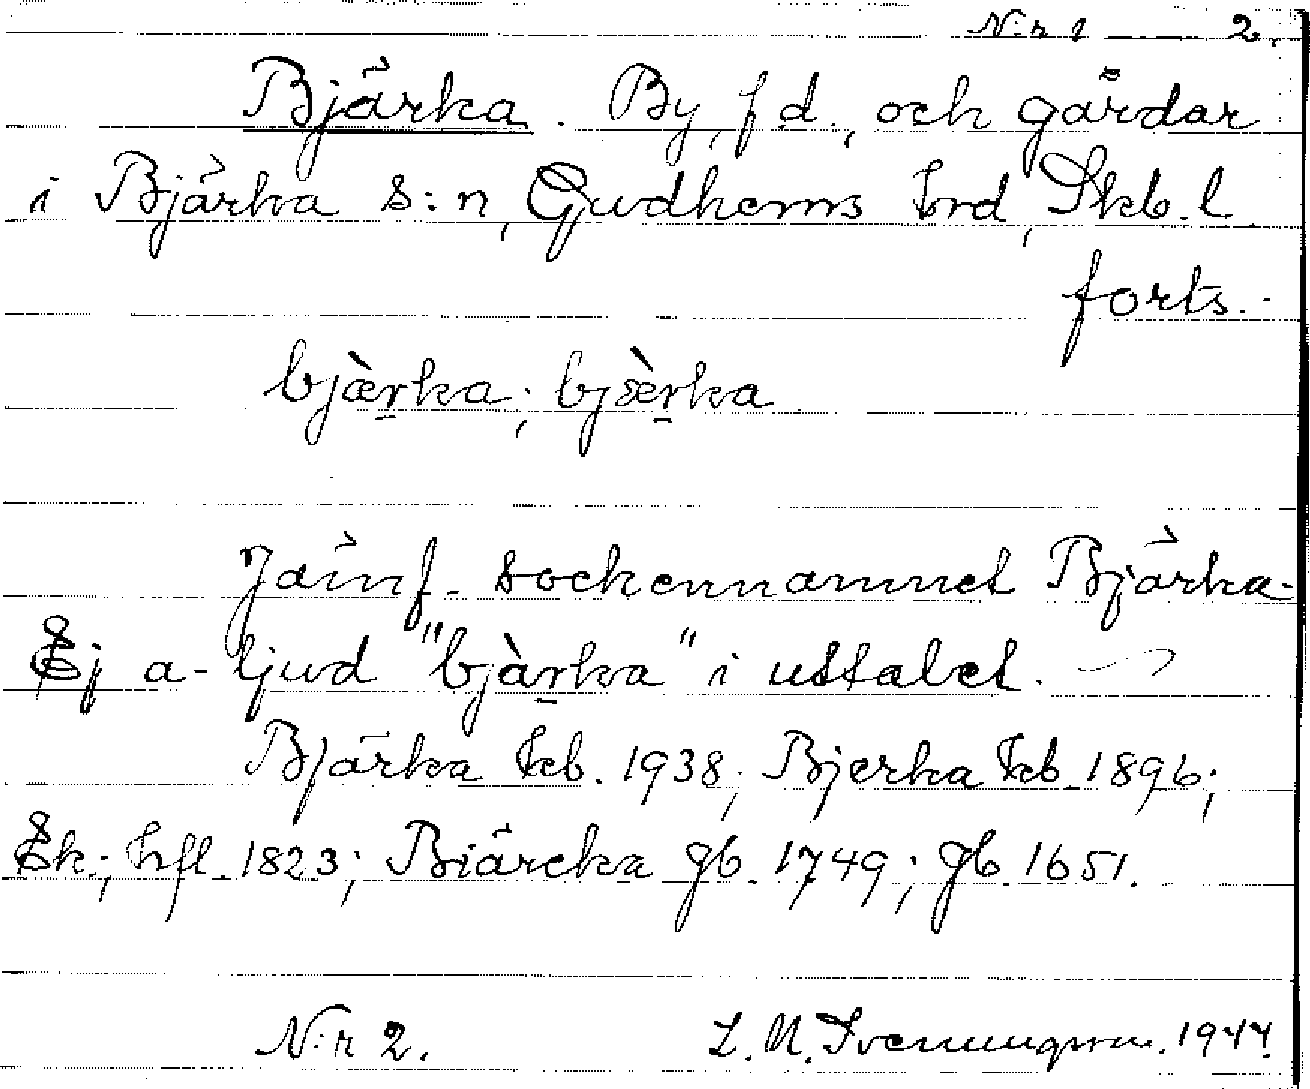 N:r 1 2.
Bjärka. By, f d., och gårdar
i Bjärka s:n, Gudhems hrd, Skb. l.
forts.
bjæ̀r̠ka; bjàer̠ka
Jämf. sockennamnet Bjärka.
Ej a-ljud "bjàr̠ka" i uttalet.
Bjärka Kb. 1938; Bjerka Kb. 1896;
Ek.; hfl. 1823; Biärcka Jb. 1749; Jb. 1651.
N:r 2. L. M. Svenungsson. 1944.